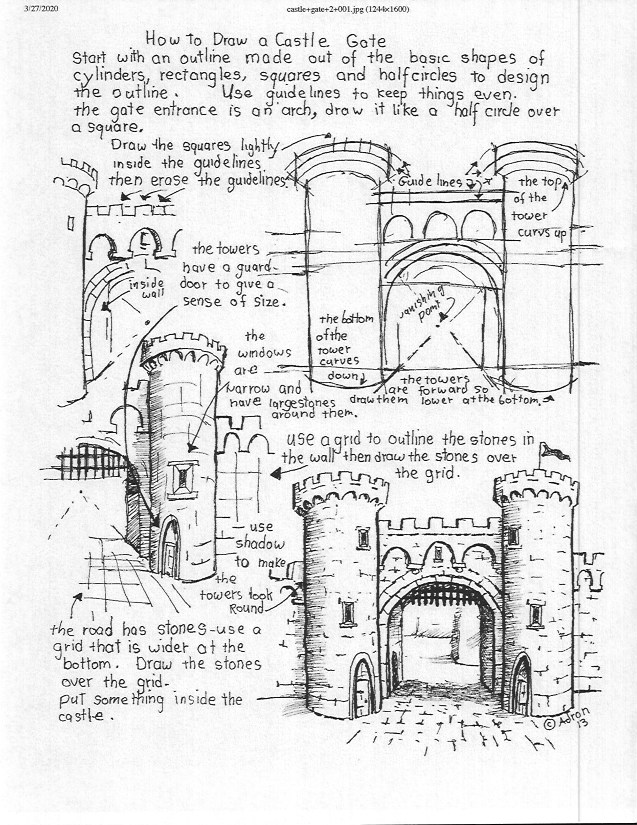 3/27/2020
castle+gate+2+001.jpg (1244×1600)
How to Draw a Castle Gate
Start with an outline made out of the basic shapes of
cylinders, rectangles, squares and halfcircles to design
the outline. Use guidelines to keep things even.
the gate entrance is an arch, draw it like a half circle over
a square.
Draw the squares lightly
inside the guidelines
then erase the guidelines.
Guide lines
the top
of the
tower
curvs up
the towers
have a guard-
door to give a
sense of size.
inside
wall
vanishing
point
the bottom
of the
tower
curves
down
the towers
are forward so
draw them lower at the bottom.
the
windows
are
narrow and
have large stones
around them.
use a grid to outline the stones in
the wall then draw the stones over
the grid.
use
shadow
to make
the
towers look
Round
the road has stones-use a
grid that is wider at the
bottom. Draw the stones
over the grid.
put something inside the
castle.
© Adron
13